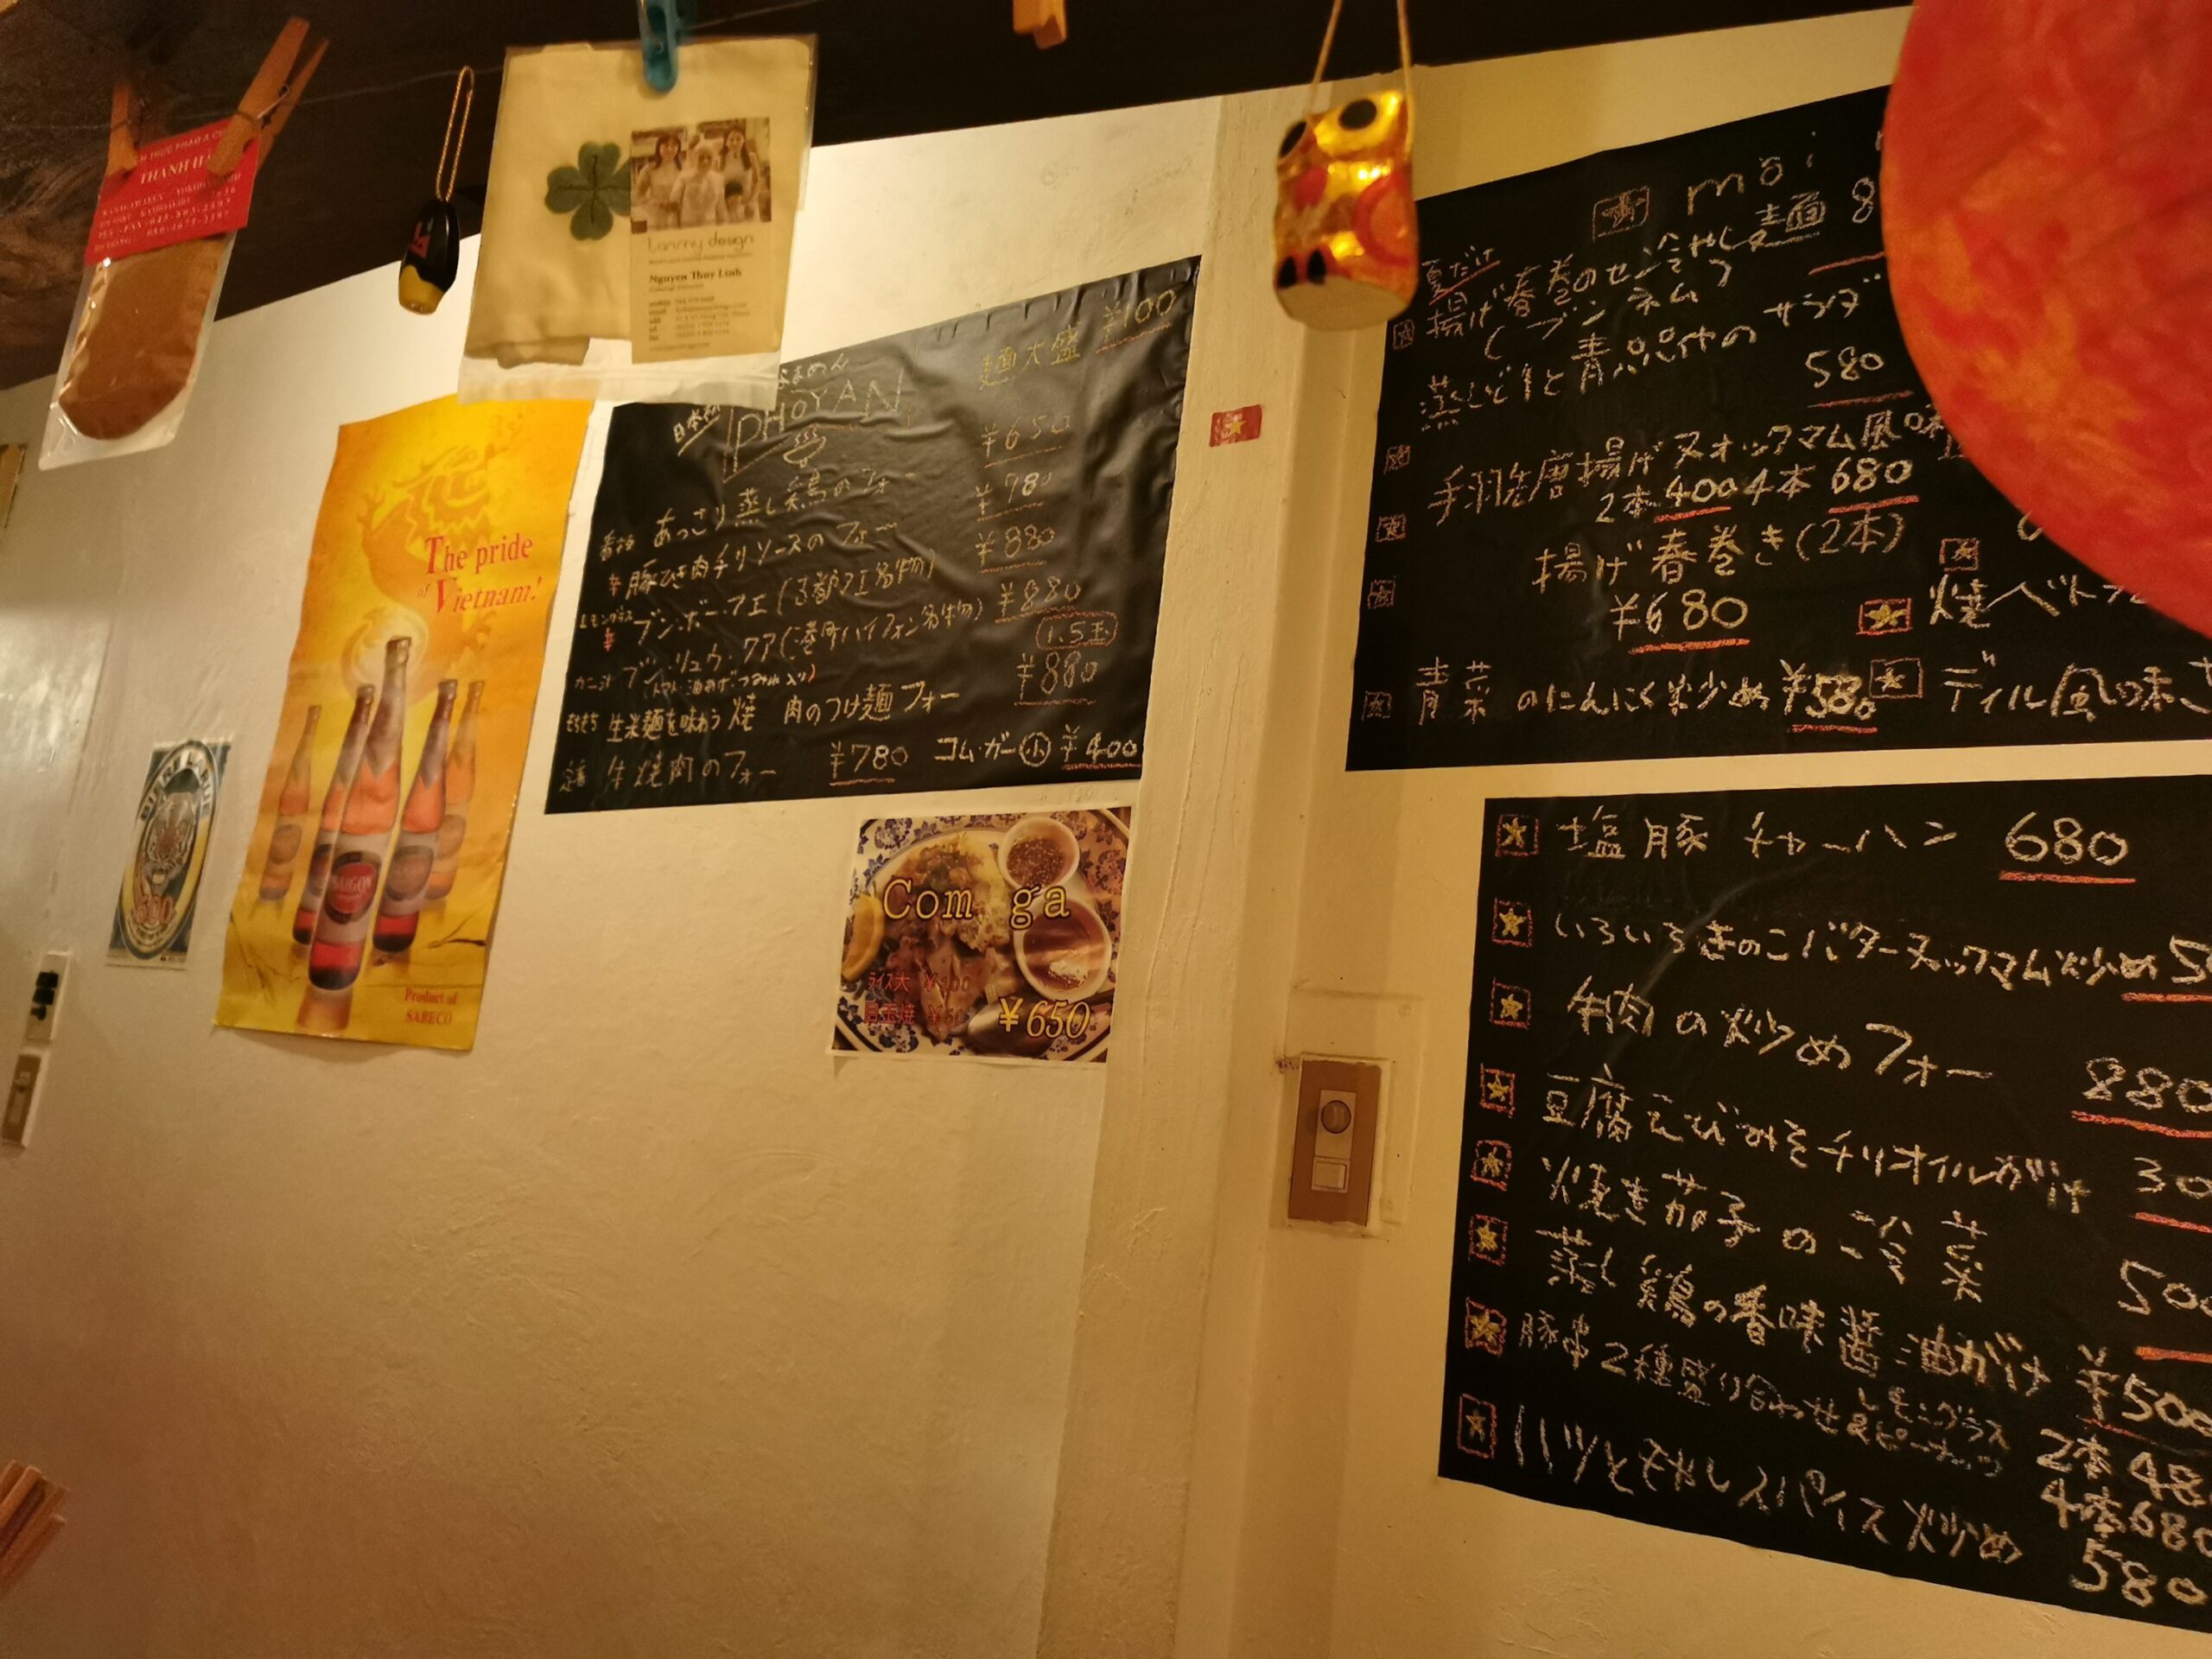 THANH HA
lanmy design
Nguyen Thuy Linh
The pride
of Vietnam!
SAIGON
Product of
SABECO
麺大盛 ¥100
PHOYAN
¥650
あっさり蒸し鶏のフォー
¥780
辛 豚ひき肉チリソースのフォー
¥880
レモングラス
辛 ブン・ボー・フエ(古都フエ名物)
¥880
カニ汁 ブン・リュウ・クア(港町ハイフォン名物)
1.5玉
¥880
もちもち 生米麺を味わう焼 肉のつけ麺フォー
定番 牛焼肉のフォー ¥780 コム・ガー小 ¥400
Com ga
ライス大 ¥100
目玉焼 ¥50
¥650
mói
夏だけ
揚げ春巻のせ冷やし麺 8
(ブンネム)
青パパイヤのサラダ
580
手羽先唐揚げヌォックマム風味
2本 400 4本 680
揚げ春巻き(2本)
¥680
焼ベトナ
青菜のにんにく炒め ¥580
ディル風味
塩豚チャーハン 680
いろいろきのこバターヌックマム炒め 5
牛肉の炒めフォー 880
豆腐えびみそチリオイルがけ 30
焼き茄子の冷菜 500
蒸し鶏の香味醤油がけ ¥500
豚串2種盛り合わせ レモングラス&ピーナッツ
2本 48
4本 680
ハツともやしスパイス炒め 580